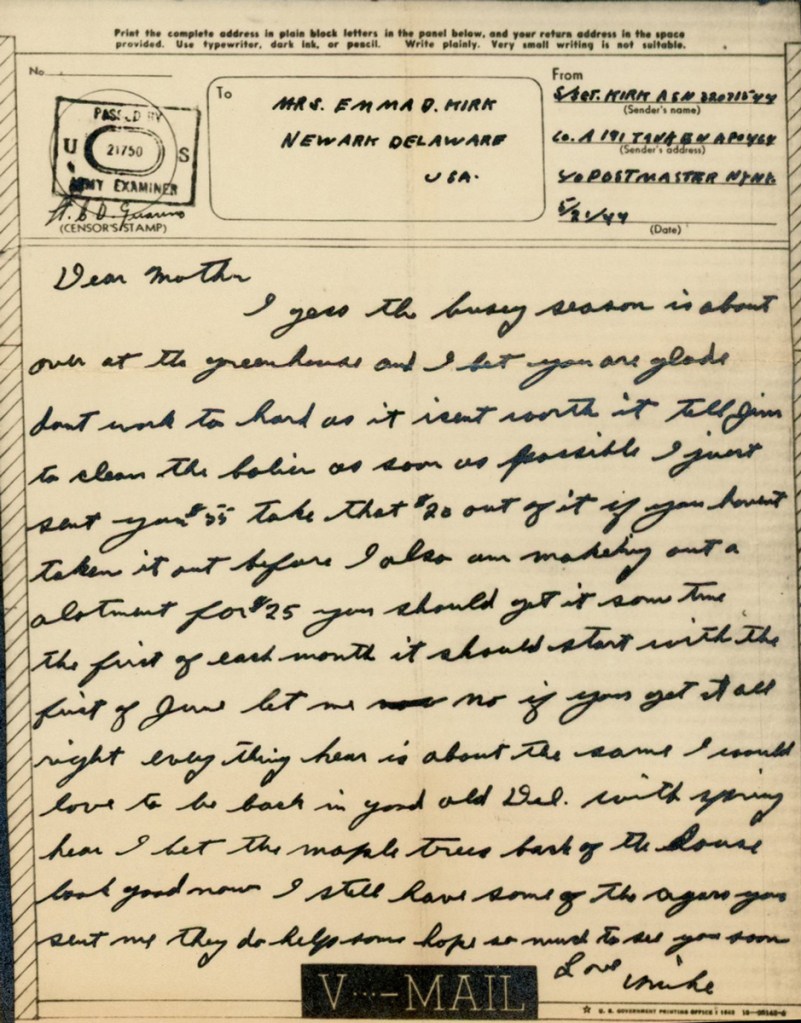 Print the complete address in plain block letters in the panel below, and your return address in the space
provided. Use typewriter, dark ink, or pencil. Write plainly. Very small writing is not suitable.
No.
PASSED BY
U 21750 S
ARMY EXAMINER
(CENSOR'S STAMP)
To
MRS. EMMA D. KIRK
NEWARK DELAWARE
USA.
From
S/SGT. KIRK ASN
(Sender's name)
CO. A 191 TANK BN APO 464
(Sender's address)
C/O POSTMASTER NY NY.
5/21/44
(Date)
Dear Mother
I gess the busey season is about
over at the greenhouse and I bet you are glade
dont work to hard as it isent worth it tell Jim
to clean the bolier as soon as possible I juest
sent you $55 take that $20 out of it if you havent
taken it out before I also am makeing out a
alotment for $25 you should get it some time
the first of each month it should start with the
first of June let me no if you get it all
right every thing hear is about the same I would
love to be back in good old Del. with spring
hear I bet the maple trees back of the house
look good now I still have some of the cigars you
sent me they do help some hope so much to see you soon
Love
Mike
V···—MAIL
U. S. GOVERNMENT PRINTING OFFICE